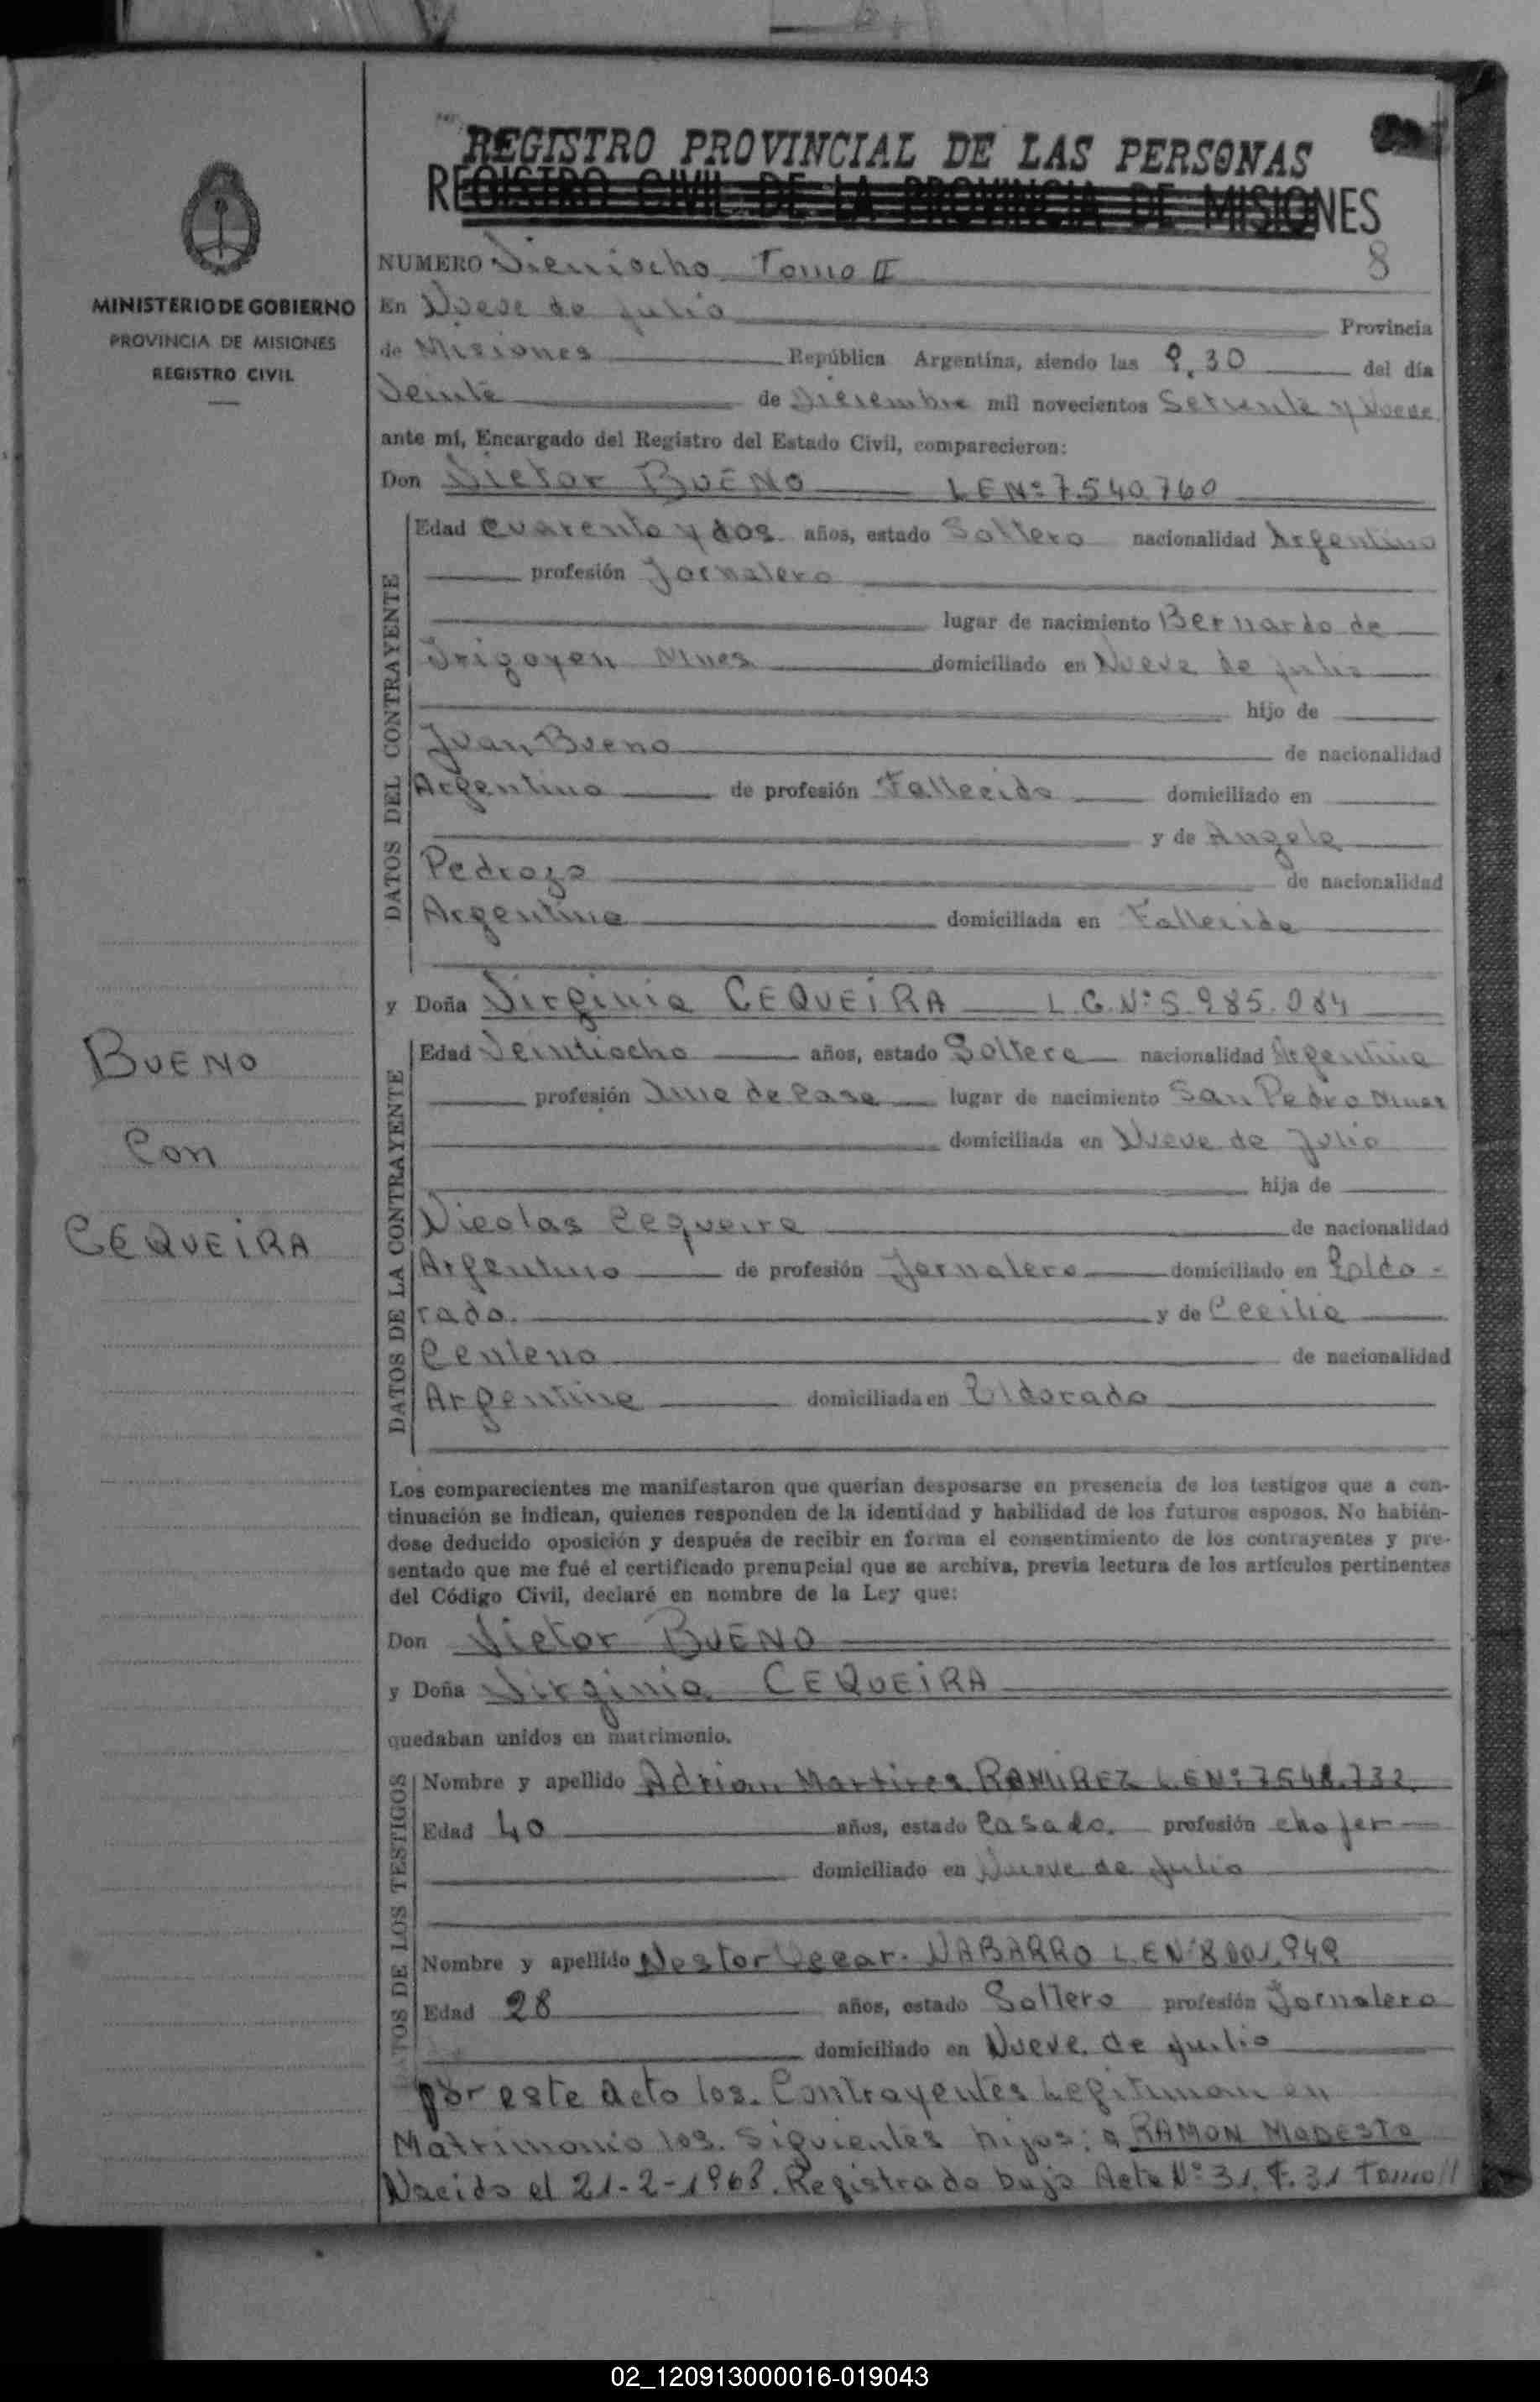 REGISTRO PROVINCIAL DE LAS PERSONAS
REGISTRO CIVIL DE LA PROVINCIA DE MISIONES
8
MINISTERIO DE GOBIERNO
PROVINCIA DE MISIONES
REGISTRO CIVIL
NUMERO Vientiocho Tomo II
En Nueve de Julio Provincia
de Misiones República Argentina, siendo las 9,30 del día
Veinte de Diciembre mil novecientos Setenta y Nueve
ante mí, Encargado del Registro del Estado Civil, comparecieron:
Don Victor BUENO L E Nº 7.540.760
DATOS DEL CONTRAYENTE
Edad Cuarenta y dos años, estado Soltero nacionalidad Argentino
profesión Jornalero
lugar de nacimiento Bernardo de
Irigoyen Mnes domiciliado en Nueve de Julio
hijo de
Juan Bueno de nacionalidad
Argentino de profesión Fallecido domiciliado en
y de Angela
Pedrozo de nacionalidad
Argentina domiciliada en Fallecida
y Doña Virginia CEQUEIRA L.C. Nº 5.985.084
DATOS DE LA CONTRAYENTE
Edad Veintiocho años, estado Soltera nacionalidad Argentina
profesión Ama de Casa lugar de nacimiento San Pedro Mnes
domiciliada en Nueve de Julio
hija de
Nicolas Cequeira de nacionalidad
Argentino de profesión Jornalero domiciliado en Eldo-
rado. y de Cecilia
Centeno de nacionalidad
Argentina domiciliada en Eldorado
BUENO
Con
CEQUEIRA
Los comparecientes me manifestaron que querían desposarse en presencia de los testigos que a con-
tinuación se indican, quienes responden de la identidad y habilidad de los futuros esposos. No habién-
dose deducido oposición y después de recibir en forma el consentimiento de los contrayentes y pre-
sentado que me fué el certificado prenupcial que se archiva, previa lectura de los artículos pertinentes
del Código Civil, declaré en nombre de la Ley que:
Don Victor BUENO
y Doña Virginia CEQUEIRA
quedaban unidos en matrimonio.
DATOS DE LOS TESTIGOS
Nombre y apellido Adrian Martires RAMIREZ L.E Nº 7548.732.
Edad 40 años, estado Casado. profesión chofer
domiciliado en Nueve de Julio
Nombre y apellido Nestor NABARRO L.E Nº 8.001.949
Edad 28 años, estado Soltero profesión Jornalero
domiciliado en Nueve de Julio
por este Acto los. Contrayentes Legitiman en
Matrimonio los. Siguientes hijos: a RAMON MODESTO
Nacido el 21-2-1968. Registrado bajo Acta Nº 31. F. 31 Tomo II
02_120913000016-019043